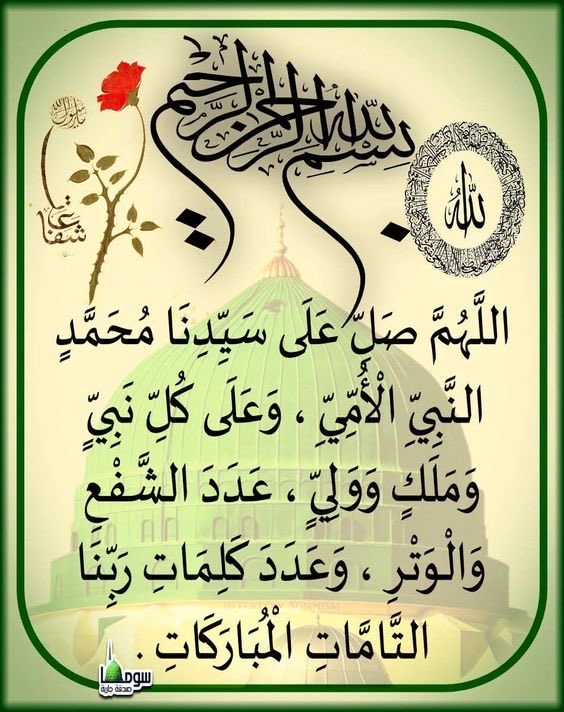 بِسْمِ اللهِ الرَّحْمٰنِ الرَّحِيمِ
الله
شفاعة
اللَّهُمَّ صَلِّ عَلَى سَيِّدِنَا مُحَمَّدٍ
النَّبِيِّ الْأُمِّيِّ ، وَعَلَى كُلِّ نَبِيٍّ
وَمَلَكٍ وَوَلِيٍّ ، عَدَدَ الشَّفْعِ
وَالْوَتْرِ ، وَعَدَدَ كَلِمَاتِ رَبِّنَا
التَّامَّاتِ الْمُبَارَكَاتِ .
سوما
صدقة جارية